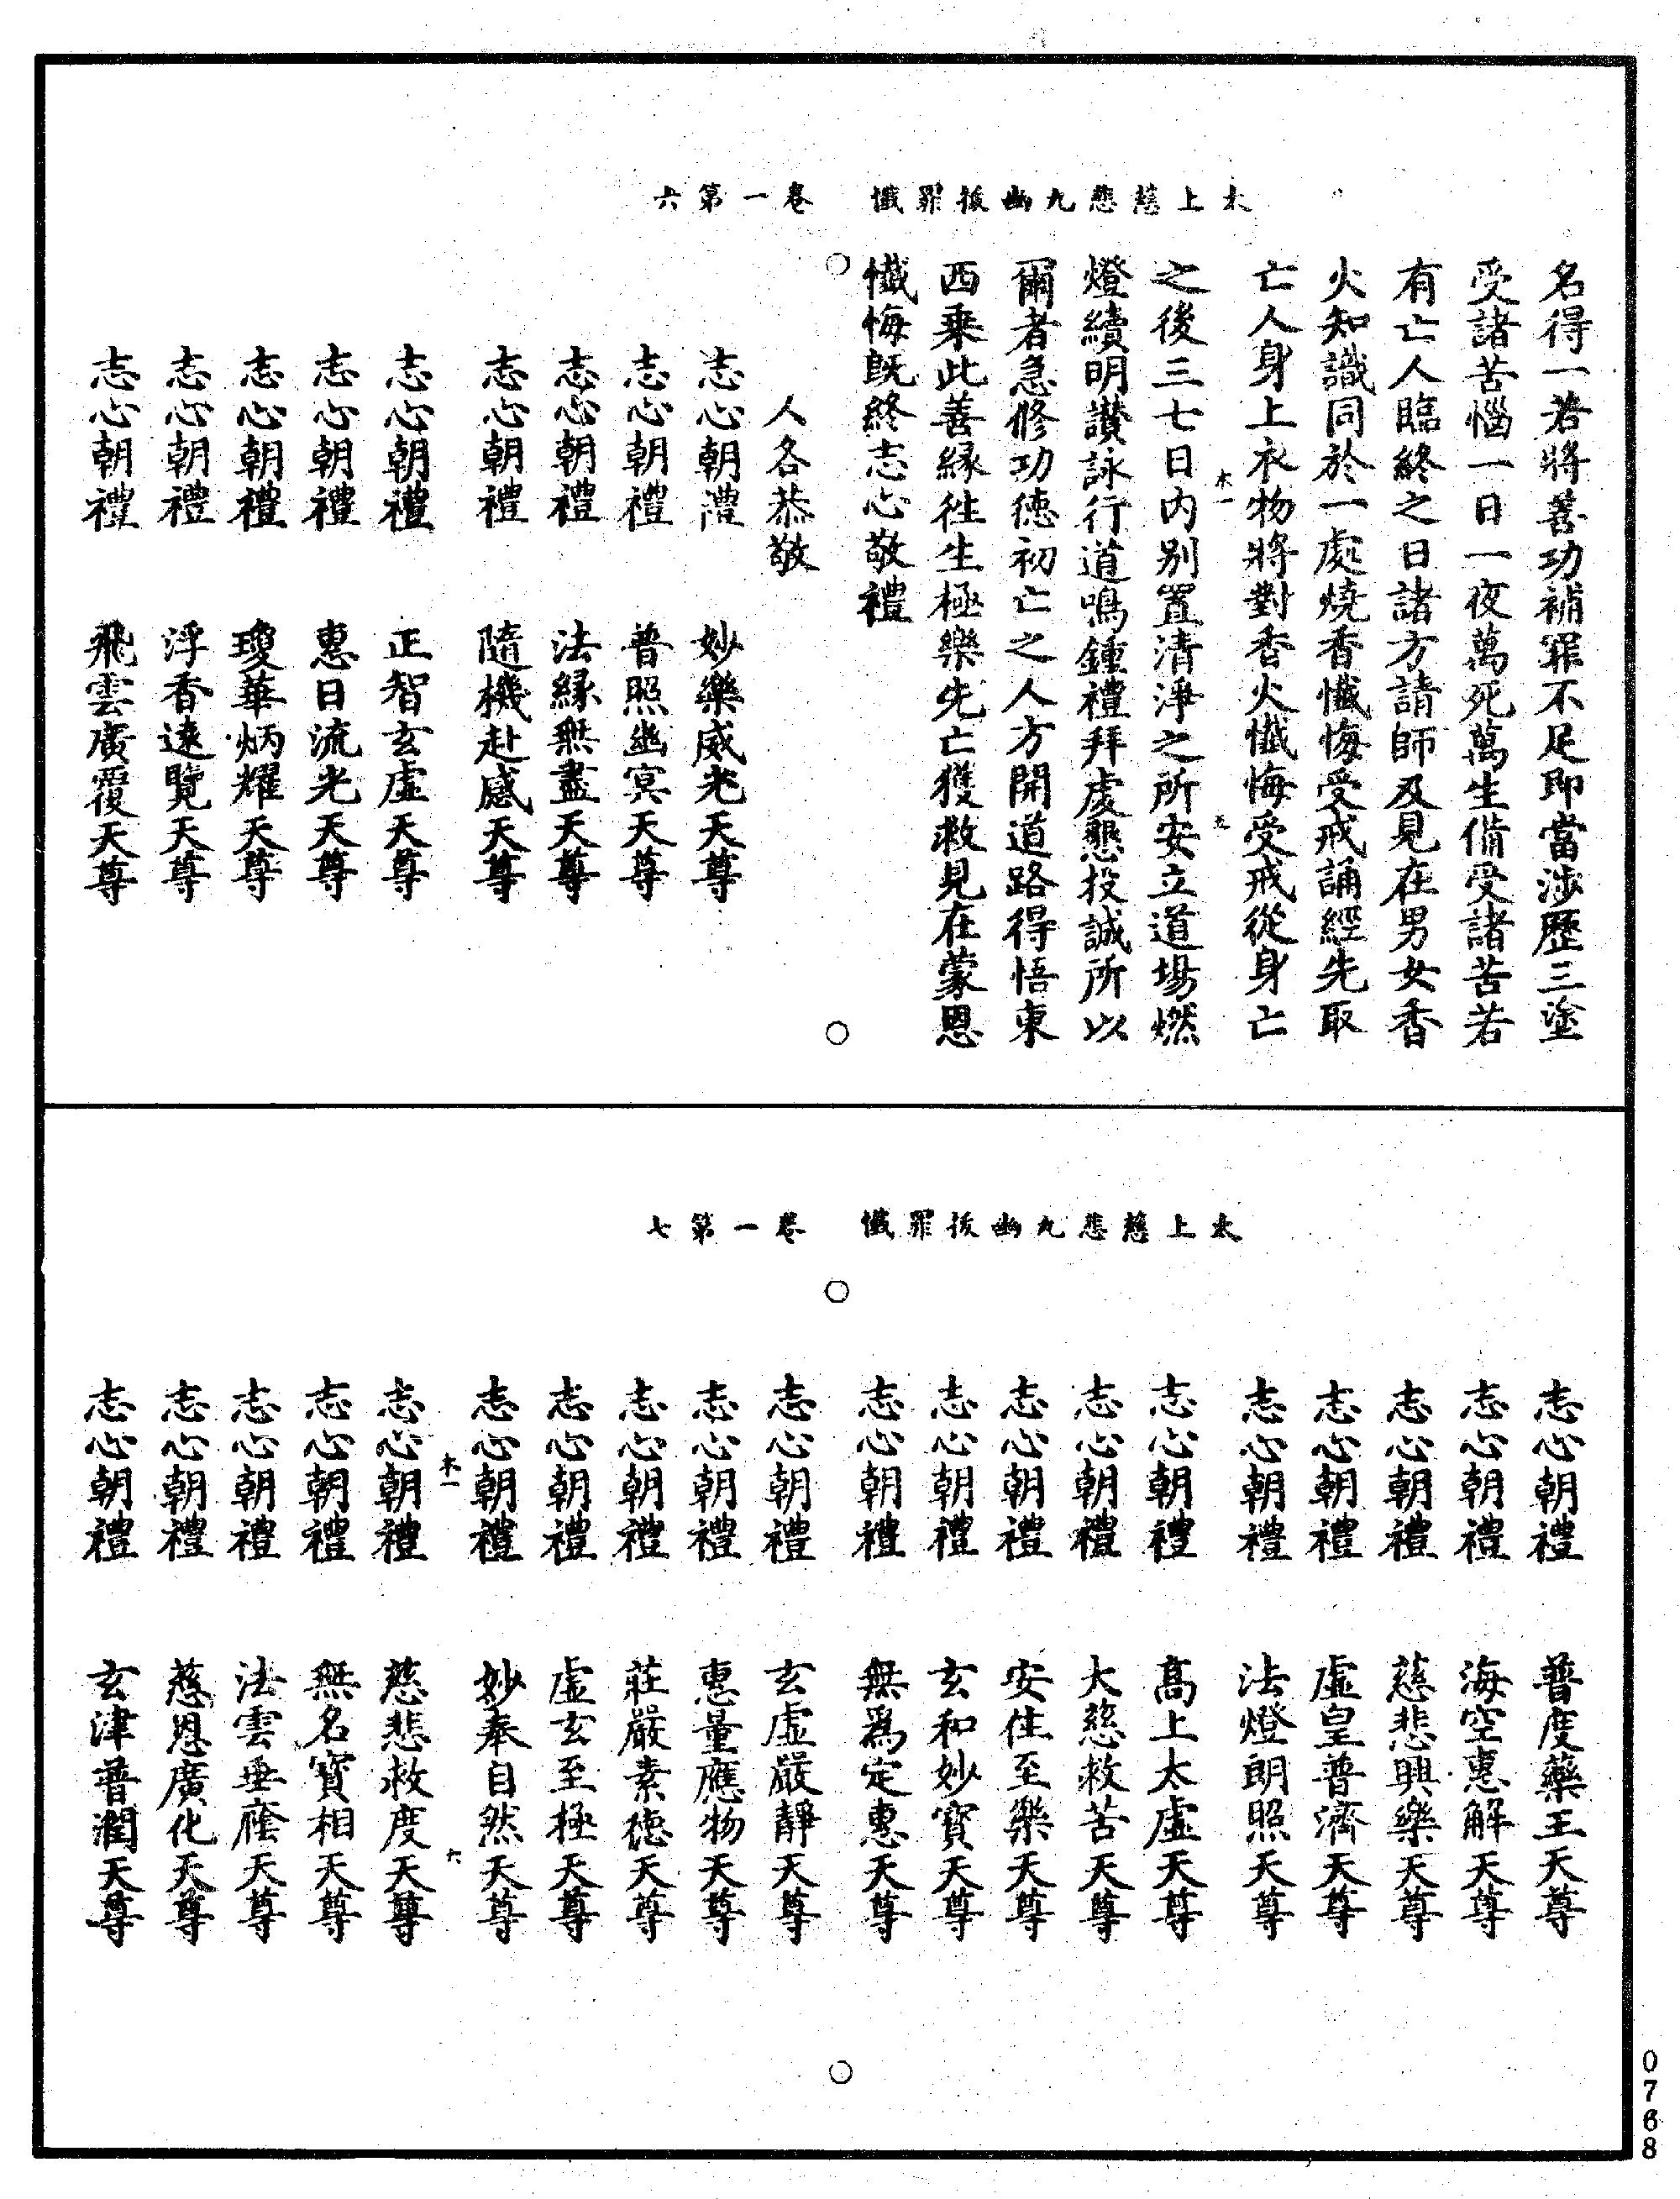 太上慈悲九幽拔罪懺　卷一第六
名得一若將善功補罪不足即當涉歷三塗
受諸苦惱一日一夜萬死萬生備受諸苦若
有亡人臨終之日諸方請師及見在男女香
火知識同於一處燒香懺悔受戒誦經先取
亡人身上衣物將對香火懺悔受戒從身亡
木一　五
之後三七日內別置清淨之所安立道場燃
燈續明讚詠行道鳴鍾禮拜虔懇投誠所以
爾者急修功德初亡之人方開道路得悟東
西乘此善緣往生極樂先亡獲救見在蒙恩
懺悔既終志心敬禮
人各恭敬
志心朝禮　妙樂威光天尊
志心朝禮　普照幽冥天尊
志心朝禮　法緣無盡天尊
志心朝禮　隨機赴感天尊
志心朝禮　正智玄虛天尊
志心朝禮　惠日流光天尊
志心朝禮　瓊華炳耀天尊
志心朝禮　浮香遠覽天尊
志心朝禮　飛雲廣覆天尊
太上慈悲九幽拔罪懺　卷一第七
志心朝禮　普度藥王天尊
志心朝禮　海空惠解天尊
志心朝禮　慈悲興樂天尊
志心朝禮　虛皇普濟天尊
志心朝禮　法燈朗照天尊
志心朝禮　高上太虛天尊
志心朝禮　大慈救苦天尊
志心朝禮　安住至樂天尊
志心朝禮　玄和妙寶天尊
志心朝禮　無為定惠天尊
志心朝禮　玄虛嚴靜天尊
志心朝禮　惠量應物天尊
志心朝禮　莊嚴素德天尊
志心朝禮　虛玄至極天尊
志心朝禮　妙奉自然天尊
木一　六
志心朝禮　慈悲救度天尊
志心朝禮　無名寶相天尊
志心朝禮　法雲垂廕天尊
志心朝禮　慈恩廣化天尊
志心朝禮　玄津普潤天尊
0768